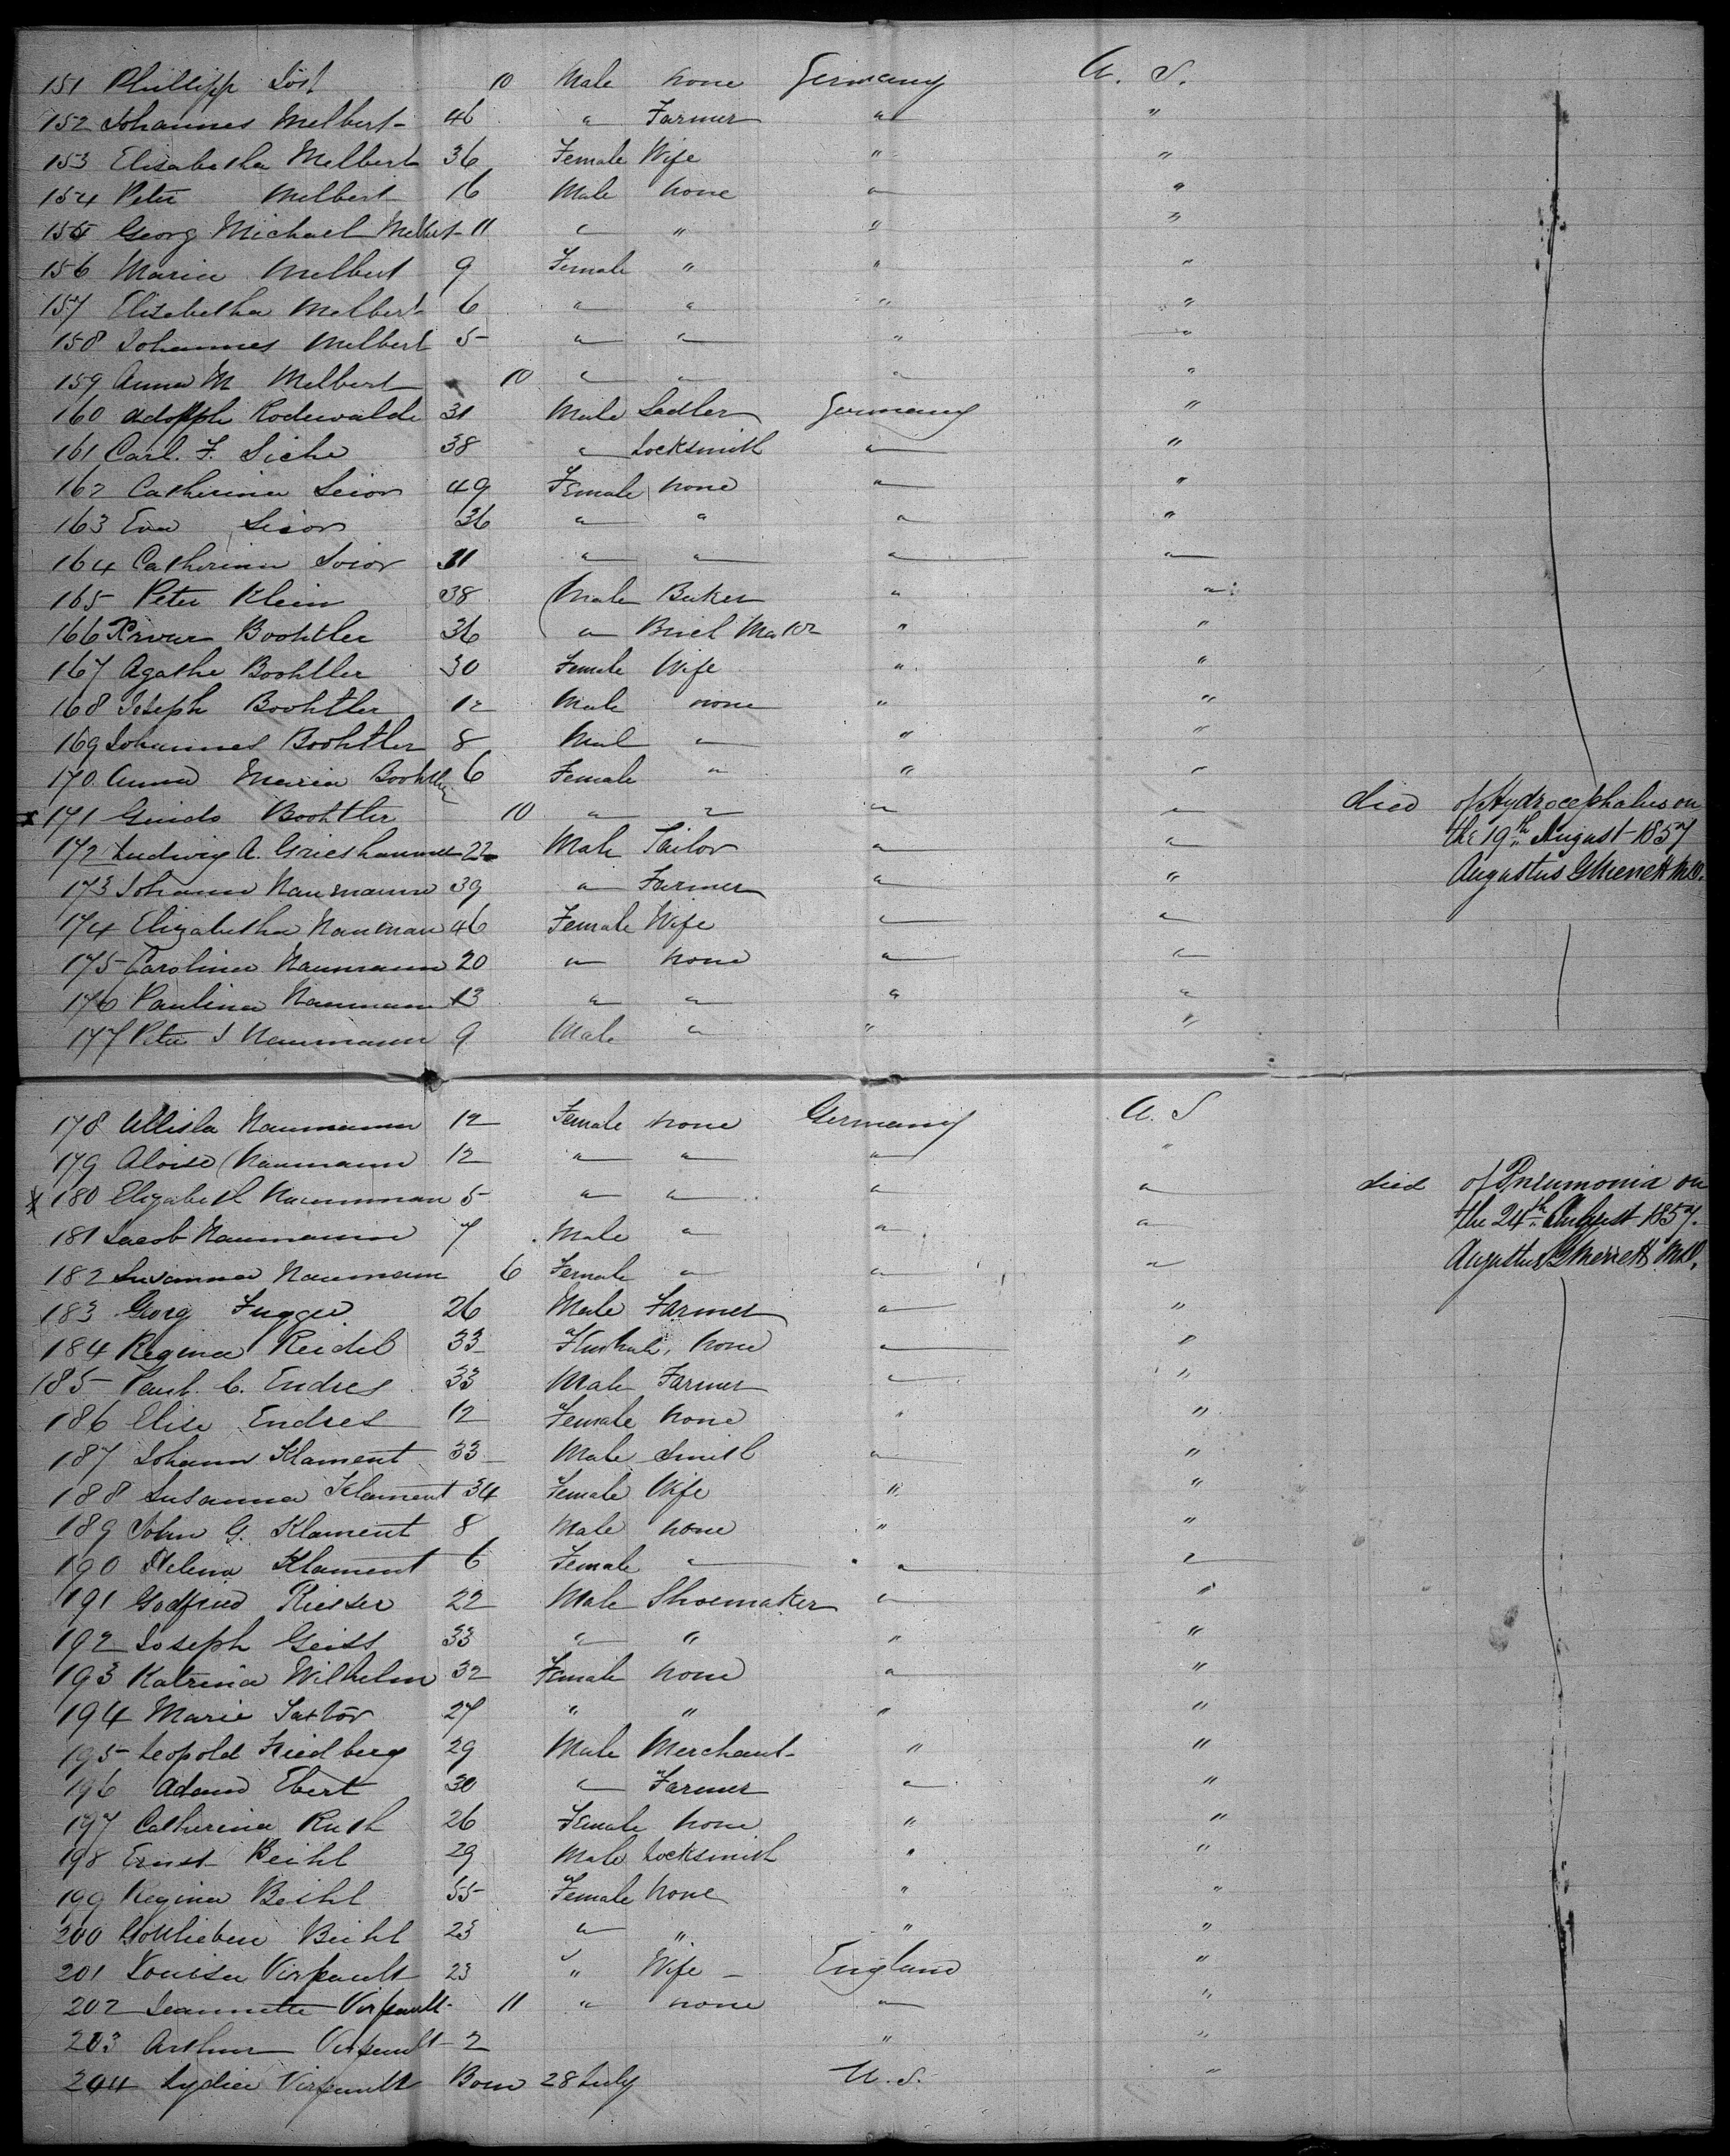 151 Phillipp Jost 10 Male None Germany U. S.
152 Johannes Melbert 46 " Farmer " "
153 Elisabetha Melbert 36 Female Wife " "
154 Peter Melbert 16 Male None " "
155 Georg Michael Melbert 11 " " " "
156 Maria Melbert 9 Female " " "
157 Elisabetha Melbert 6 " " " "
158 Johannes Melbert 5 " " " "
159 Anna M Melbert 10 " " " "
160 Adolph Rodewalde 31 Male Sadler Germany "
161 Carl. F. Siche 38 " Locksmith " "
162 Catherina Seior 49 Female none " "
163 Eva Seior 36 " " " "
164 Catherina Seior 11 " " " "
165 Peter Klein 38 Male Baker " "
166 Boohtler 36 " " "
167 Agathe Boohtler 30 Female Wife " "
168 Joseph Boohtler 12 Male none " "
169 Johannes Boohtler 8 Mal " " "
170 Anna Maria Boohtler 6 Female " " "
x 171 Guido Boohtler 10 " " " " died of Hydrocephalus on
172 Ludwig A. Grieshammer 22 Male Tailor " " the 19th August 1857
173 Johann Naumann 39 " Farmer " " Augustus G Merrett M.D.
174 Elizabetha Nauman 46 Female Wife " "
175 Carolina Naumann 20 " None " "
176 Paulina Naumann 13 " " " "
177 Peter J Naumann 9 Male " " "
178 Naumann 12 Female none Germany U. S
179 Aloise Naumann 12 " " " "
x 180 Elizabeth Naumman 5 " " " " died of Pneumonia on
181 Jacob Naumann 7 Male " " " the 24th August 1857.
182 Susanna Naumann 6 Female " " " Augustus G Merrett M.D.
183 Georg Fugger 26 Male Farmer " "
184 Regina Reidel 33 None " "
185 Paul. C. Endres 33 Male Farmer " "
186 Elise Endres 12 Female None " "
187 Johann Klament 33 Male Smith " "
188 Susanna Klament 34 Female Wife " "
189 John G. Klament 8 Male none " "
190 Helena Klament 6 Female " " "
191 Godfried Riesser 22 Male Shoemaker " "
192 Joseph Geiss 33 " " " "
193 Katrina Wilhelm 32 Female None " "
194 Marie Saxtor 27 " " " "
195 Leopold Friedberg 29 Male Merchant " "
196 Adam Ebert 30 " Farmer " "
197 Catherina Ruth 26 Female None " "
198 Ernst Beihl 29 Male Locksmith " "
199 Regina Beihl 55 Female None " "
200 Gottlieben Beihl 23 " " " "
201 Louisa Virpault 23 " Wife England "
202 Jeannette Virpault 11 " none " "
203 Arthur Virpault 2 " "
204 Lydia Virpault Born 28 July U. S. "